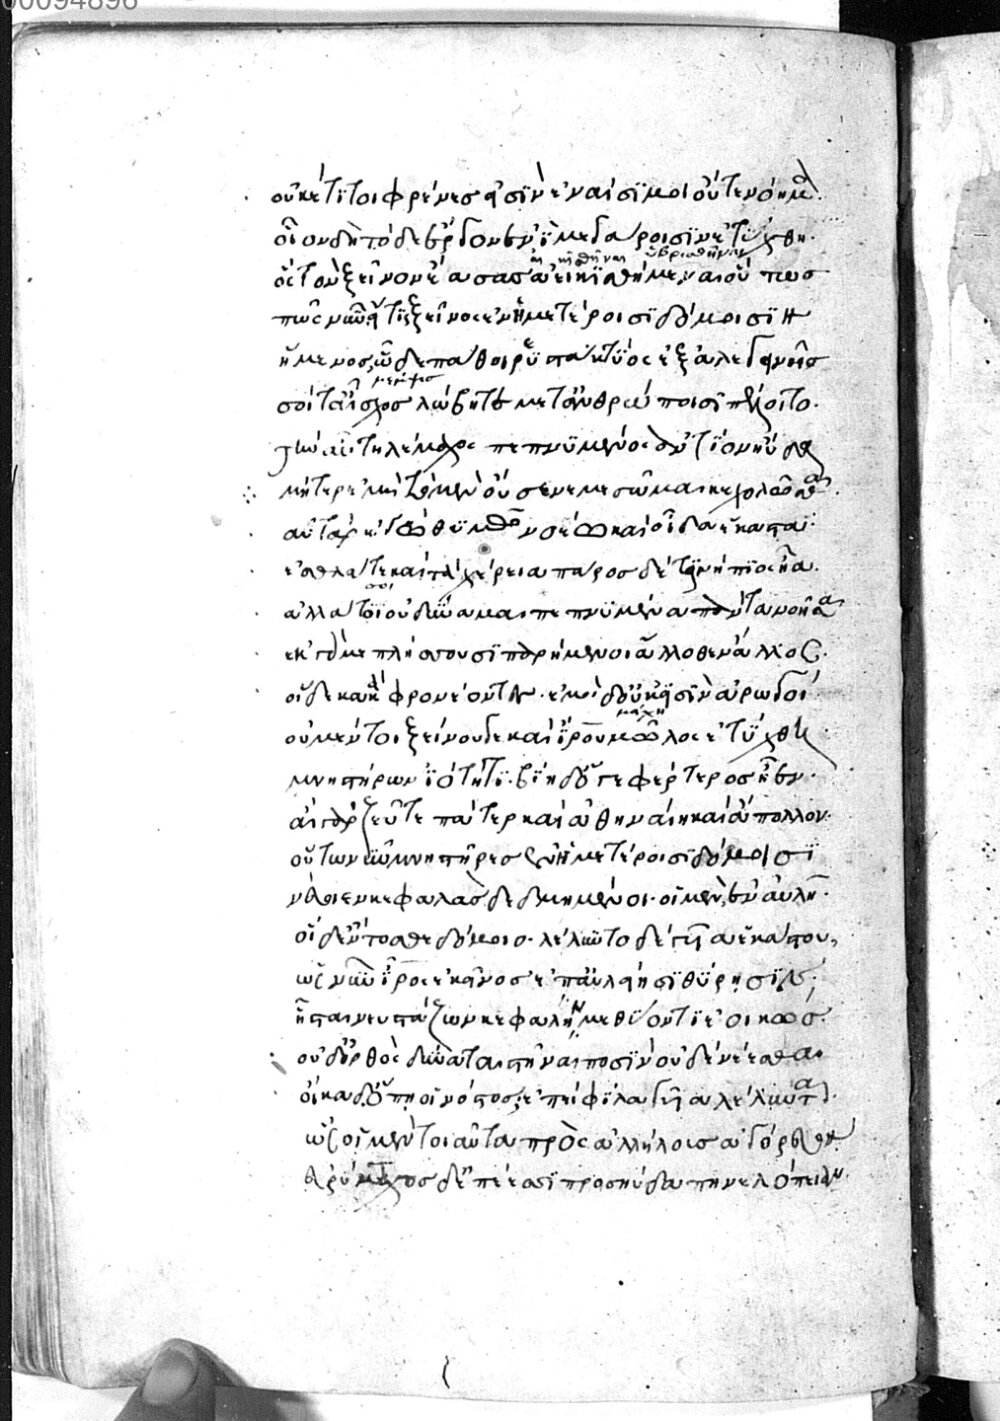 οὐκέτι τοι φρένες εἰσὶν ἐναίσιμοι οὔτε νόημα.
οἷον δὴ τόδε ἔργον ἐνὶ μεγάροισιν ἐτύχθη.
αἰκισθῆναι ὑβρισθῆναι
ὃς τὸν ξεῖνον ἔασας ἀεικισθήμεναι οὕτως
πῶς νῦν εἴ τις ξεῖνος ἐν ἡμετέροισι δόμοισιν
ἥμενος ὧδε πάθοι ῥυστακτύος ἐξ ἀλεγεινῆς
μέμψις
σοί τ' αἶσχος λώβη τε μετ' ἀνθρώποισι πέλοιτο.
τὴν δ' αὖ τηλέμαχος πεπνυμένος ἀντίον ηὔδα
μῆτερ ἐμὴ τὸ μὲν οὔ σε νεμεσῶμαι κεχολῶσθαι.
αὐτὰρ ἐγὼ θυμῷ νοέω καὶ οἶδα ἕκαστα.
ἐσθλά τε καὶ τὰ χέρεια πάρος δ' ἔτι νήπιος ἦα.
σοί
ἀλλά τοι οὐ δύναμαι πεπνυμένα πάντα νοῆσαι
ἐκ γάρ με πλήσσουσι παρήμενοι ἄλλοθεν ἄλλος.
οἵδε κακὰ φρονέοντες. ἐμοὶ δ' οὐκ εἰσὶν ἀρωγοί
μάχη
οὐ μέν τοι ξείνου γε καὶ ἴρου μῶλος ἐτύχθη
μνηστήρων ἰότητι. βίῃ δ' ὅ γε φέρτερος ἦεν.
αἲ γὰρ ζεῦ τε πάτερ καὶ ἀθηναίη καὶ ἄπολλον.
οὕτω νῦν μνηστῆρες ἐν ἡμετέροισι δόμοισι
νεύοιεν κεφαλὰς δεδμημένοι. οἱ μὲν ἐν αὐλῇ.
οἱ δ' ἔντοσθε δόμοιο. λέλυντο δὲ γυῖα ἑκάστου,
ὡς νῦν ἶρος ἐκεῖνος ἐπ' αὐλείῃσι θύρῃσιν.
ἧσται νευστάζων κεφαλῇ μεθύοντι ἐοικώς.
οὐδ' ὀρθὸς δύναται στῆναι ποσὶν οὐδὲ νέεσθαι
οἴκαδ' ὅπη οἱ νόστος. ἐπεὶ φίλα γυῖα λέλυνται.
ὣς οἱ μὲν τοιαῦτα πρὸς ἀλλήλους ἀγόρευον
εὐρύμαχος δ' ἐπέεσσι προσηύδα πηνελόπειαν.